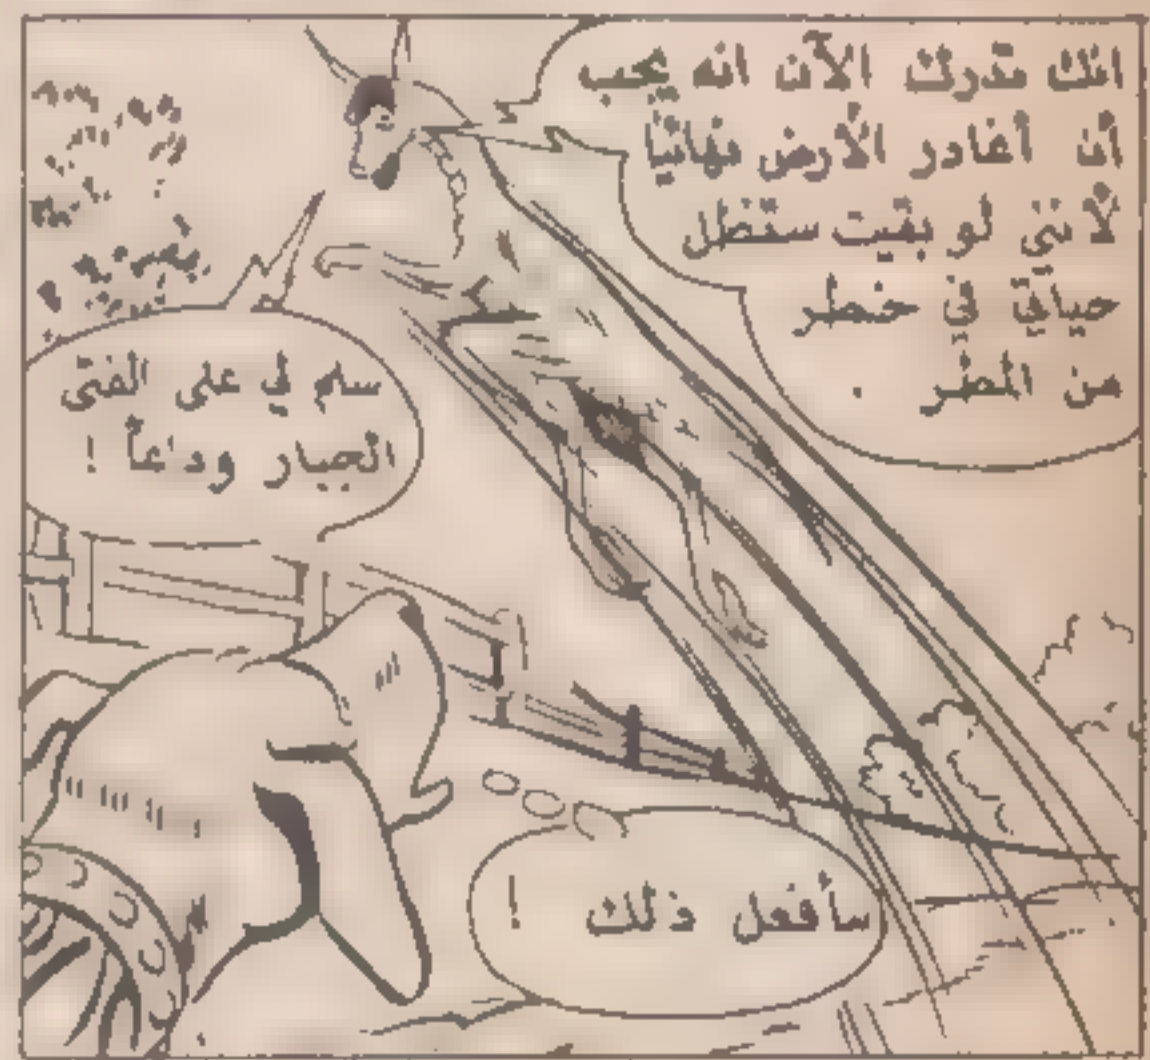 انك تدرك الآن انه يجب
أن أغادر الأرض نهائياً
لأنني لو بقيت ستظل
حياتي في خطر
من المطر .
سلم لي على الفتى
الجبار وداعاً !
سأفعل ذلك !